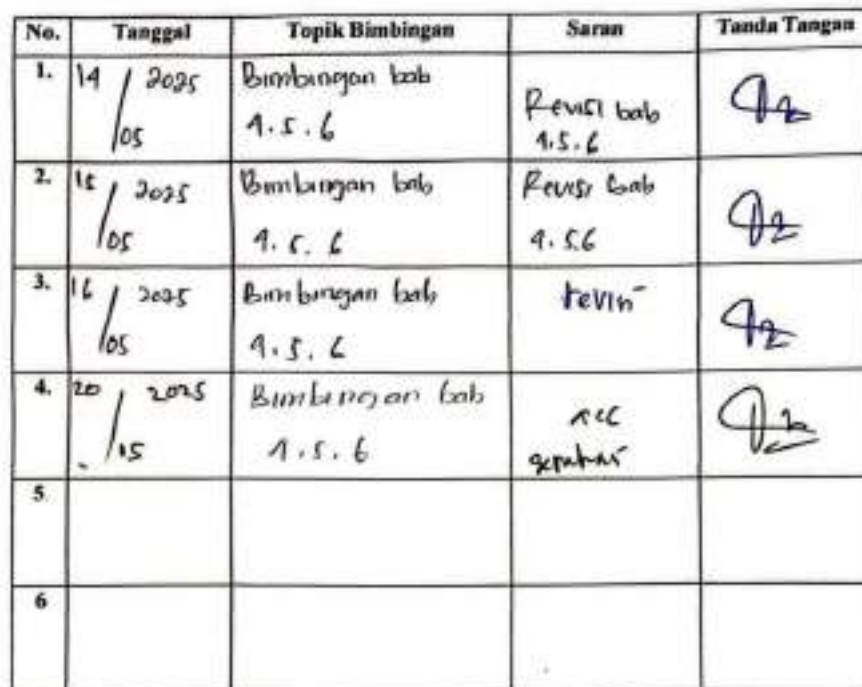 No. Tanggal Topik Bimbingan Saran Tanda Tangan
1. 14/05 2025 Bimbingan bab 4.5.6 Revisi bab 4.5.6
2. 15/05 2025 Bimbingan bab 4.5.6 Revisi bab 4.5.6
3. 16/05 2025 Bimbingan bab 4.5.6 revisi
4. 20/05 2025 Bimbingan bab 4.5.6 acc
5
6